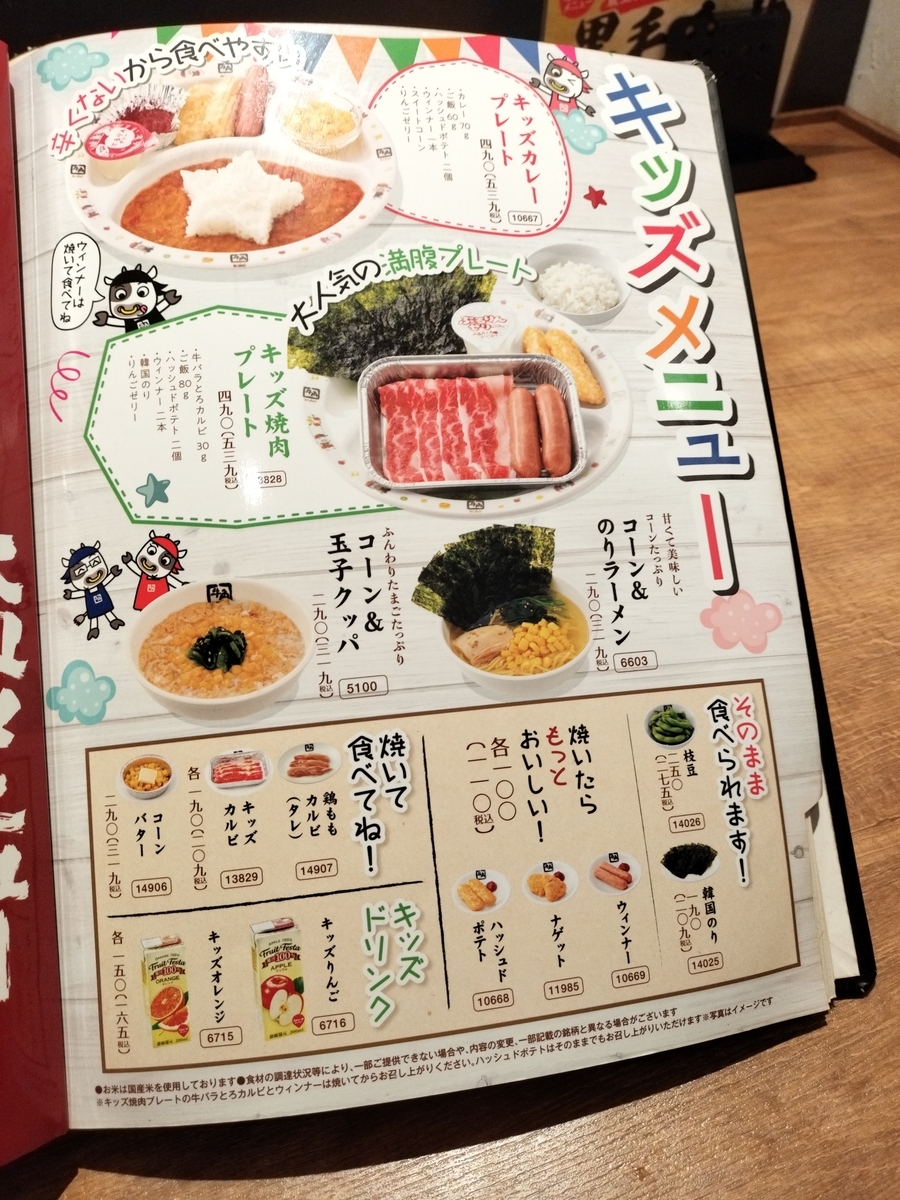 キッズメニュー
辛くないから食べやすい
キッズカレー
プレート
四九〇(五三九税込)
10667
・カレー 70g
・ご飯 60g
・ハッシュドポテト 二個
・ウィンナー 一本
・スイートコーン
・りんごゼリー
ウィンナーは
焼いて食べてね
大人気の満腹プレート
キッズ焼肉
プレート
四九〇(五三九税込)
3828
・牛バラとろカルビ 30g
・ご飯 80g
・ハッシュドポテト 二個
・ウィンナー 二本
・韓国のり
・りんごゼリー
甘くて美味しい
コーンたっぷり
コーン&
のりラーメン
二九〇(三一九税込)
6603
ふんわりたまごたっぷり
コーン&
玉子クッパ
二九〇(三一九税込)
5100
そのまま
食べられます!
枝豆
二五〇
(二七五税込)
14026
韓国のり
一九〇
(二〇九税込)
14025
焼いたら
もっと
おいしい!
各一〇〇
(一一〇税込)
ウィンナー
10669
ナゲット
11985
ハッシュド
ポテト
10668
焼いて
食べてね!
鶏もも
カルビ
(タレ)
14907
キッズ
カルビ
13829
各 一九〇(二〇九税込)
コーン
バター
14906
二九〇(三一九税込)
キッズ
ドリンク
キッズりんご
6716
Fruit Festa
100
APPLE
キッズオレンジ
6715
Fruit Festa
100
ORANGE
各 一五〇(一六五税込)
●お米は国産米を使用しております●食材の調達状況等により、一部ご提供できない場合や、内容の変更、一部記載の銘柄と異なる場合がございます
※キッズ焼肉プレートの牛バラとろカルビとウィンナーは焼いてからお召し上がりください。ハッシュドポテトはそのままでもお召し上がりいただけます※写真はイメージです